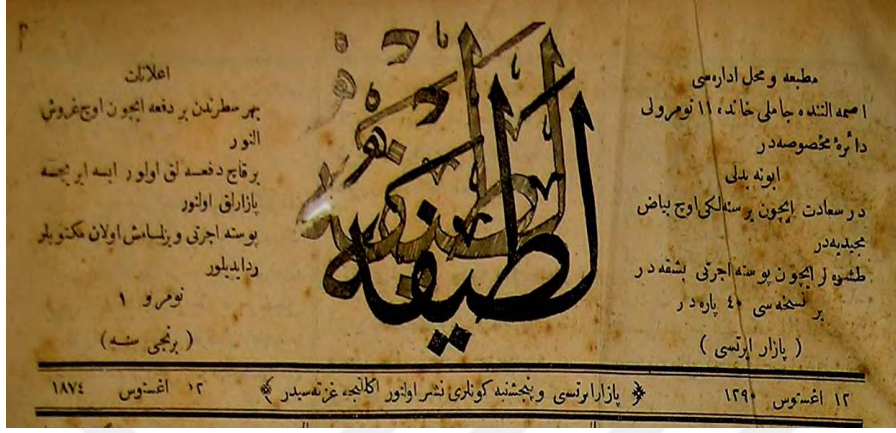 مطبعه و محل اداره‌سی
اصمه التنده جاملی خانده ۱۱ نومرولی
دائرۀ مخصوصه‌در
ابونه بدلی
در سعادت ایچون بر سنه‌لکی اوچ بیاض
مجیدیه‌در
طشره لر ایچون پوسته اجرتی بشقه در
بر نسخه‌سی ۴۰ پاره در
( پازار ایرتسی )
لطیفه
اعلانات
بهر سطرندن بر دفعه ایچون اوچ غروش
النور
بر قاچ دفعه لق اولور ایسه ایریجه
پازارلق اولنور
پوسته اجرتی ویرلمامش اولان مکتوبلر
رد ایدیلور
نومرو ۱
( برنجی سنه )
۱۲ اغستوس ۱۲۹۰
پازار ایرتسی و پنجشنبه کونلری نشر اولنور اکلنجه غزته‌سیدر
۱۲ اغستوس ۱۸۷٤